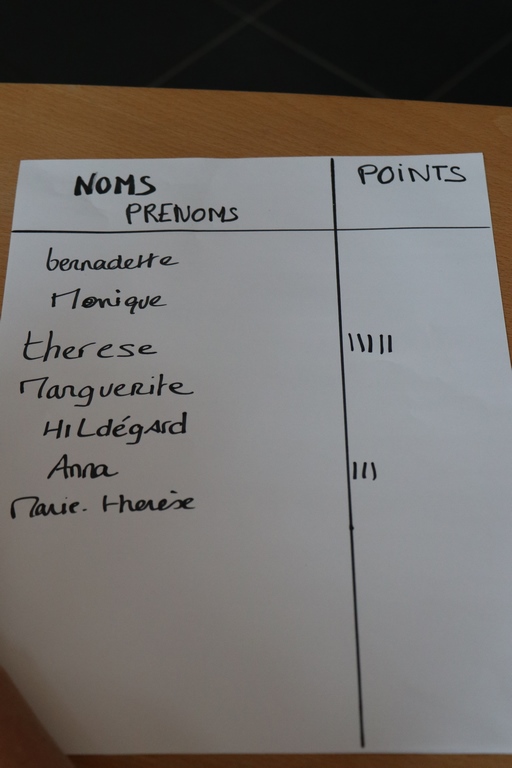 NOMS
PRENOMS
POiNTS
bernadette
Monique
therese \\\|||
Marguerite
HiLdégArd
Anna |||
Marie. therèse